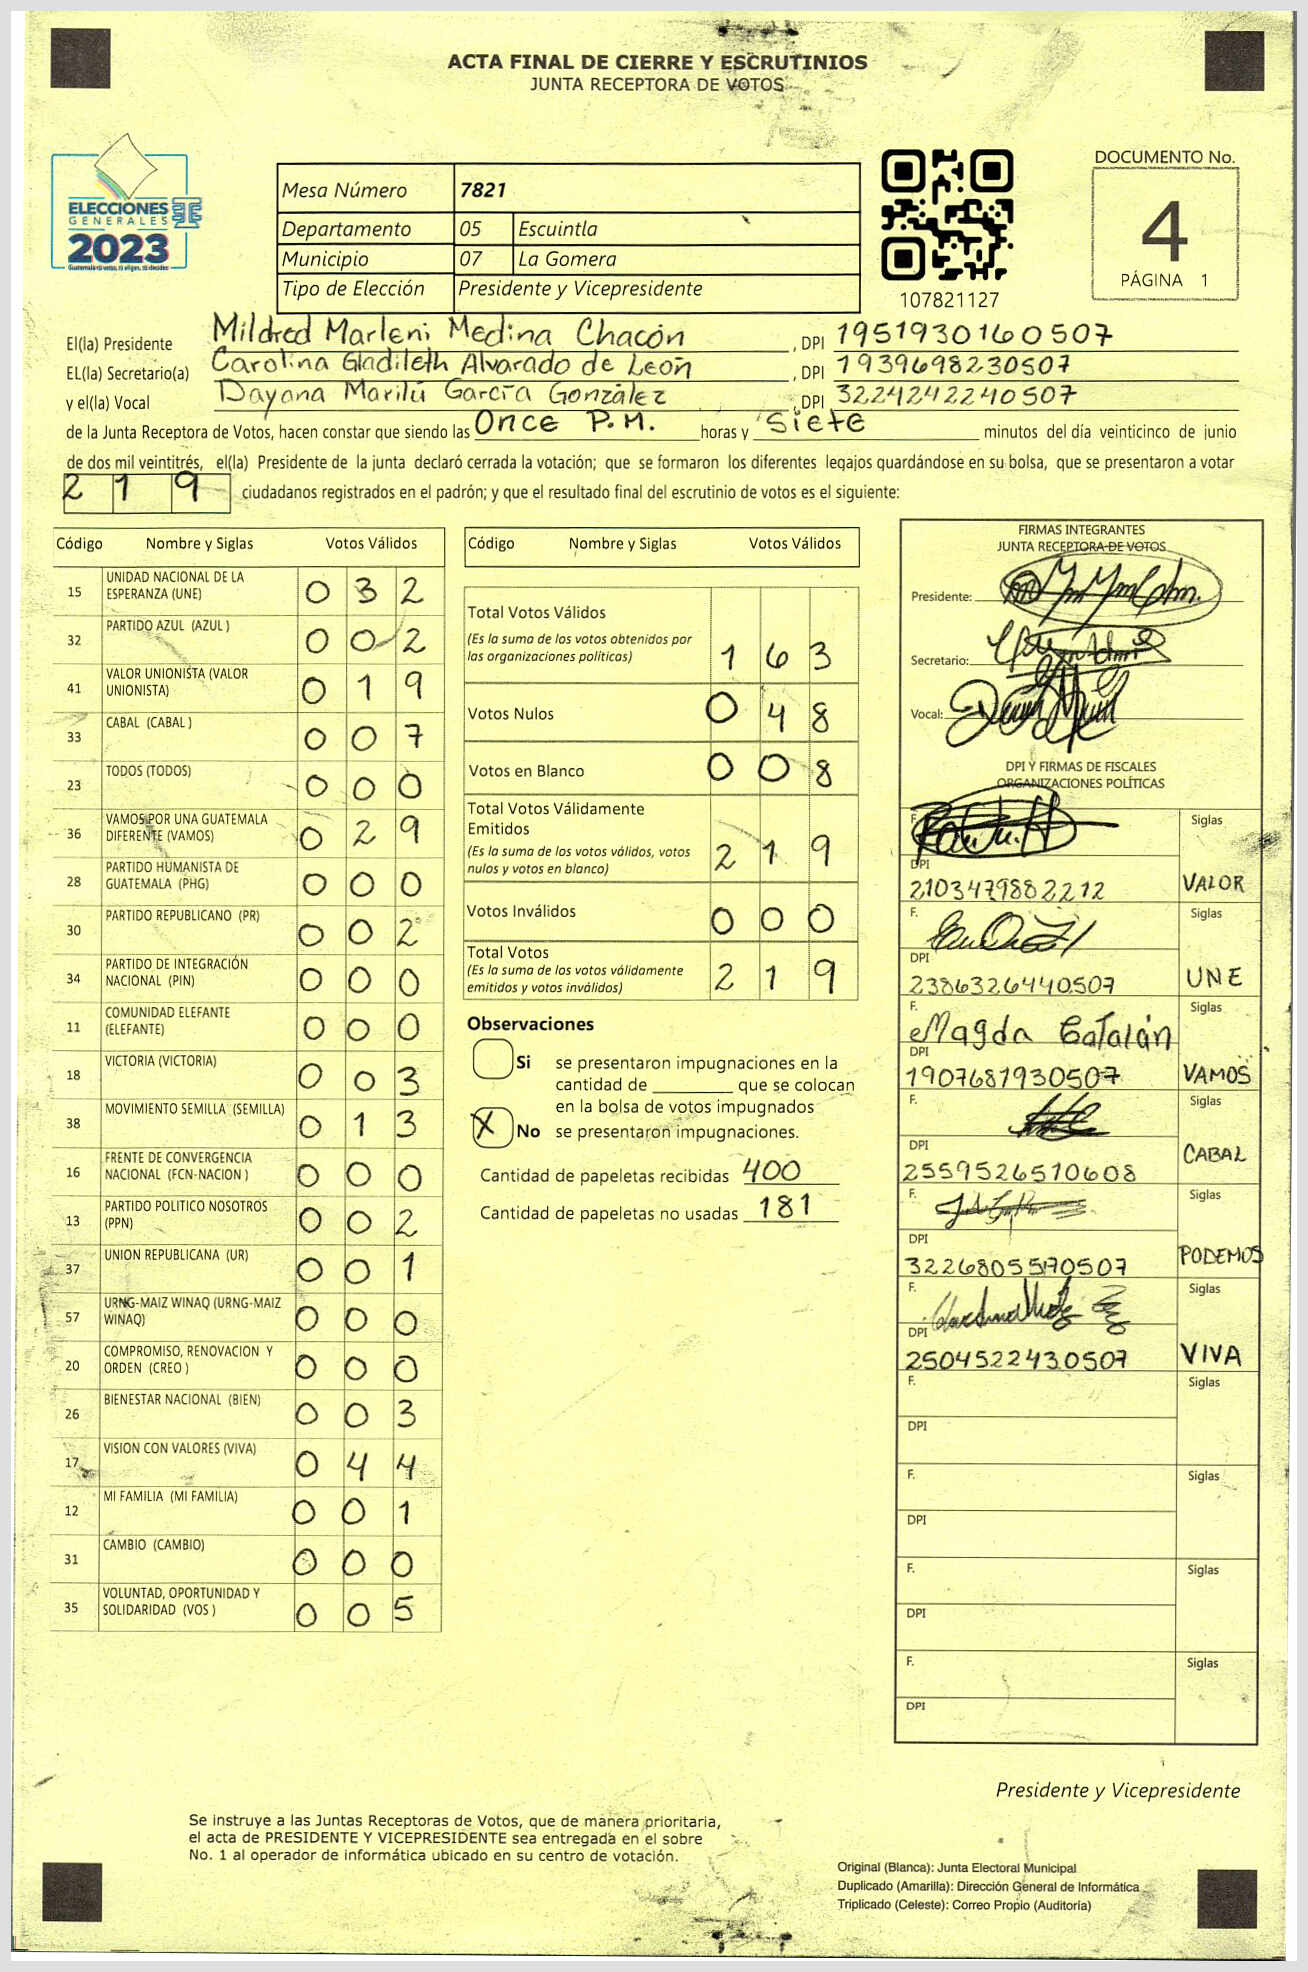 ACTA FINAL DE CIERRE Y ESCRUTINIOS
JUNTA RECEPTORA DE VOTOS
ELECCIONES
GENERALES
2023
Mesa Número 7821
Departamento 05 Escuintla
Municipio 07 La Gomera
Tipo de Elección Presidente y Vicepresidente
107821127
DOCUMENTO No.
4
PÁGINA 1
El(la) Presidente Mildred Marleni Medina Chacón , DPI 1951930160507
EL(la) Secretario(a) Carolina Gladileth Alvarado de León , DPI 1939698230507
y el(la) Vocal Dayana Marilú García González , DPI 3224242240507
de la Junta Receptora de Votos, hacen constar que siendo las Once P.M. horas y Siete minutos del día veinticinco de junio
de dos mil veintitrés, el(la) Presidente de la junta declaró cerrada la votación; que se formaron los diferentes legajos guardándose en su bolsa, que se presentaron a votar
219 ciudadanos registrados en el padrón; y que el resultado final del escrutinio de votos es el siguiente:
Código Nombre y Siglas Votos Válidos
15 UNIDAD NACIONAL DE LA ESPERANZA (UNE) 0 3 2
32 PARTIDO AZUL (AZUL ) 0 0 2
41 VALOR UNIONISTA (VALOR UNIONISTA) 0 1 9
33 CABAL (CABAL ) 0 0 7
23 TODOS (TODOS) 0 0 0
36 VAMOS POR UNA GUATEMALA DIFERENTE (VAMOS) 0 2 9
28 PARTIDO HUMANISTA DE GUATEMALA (PHG) 0 0 0
30 PARTIDO REPUBLICANO (PR) 0 0 2
34 PARTIDO DE INTEGRACIÓN NACIONAL (PIN) 0 0 0
11 COMUNIDAD ELEFANTE (ELEFANTE) 0 0 0
18 VICTORIA (VICTORIA) 0 0 3
38 MOVIMIENTO SEMILLA (SEMILLA) 0 1 3
16 FRENTE DE CONVERGENCIA NACIONAL (FCN-NACION ) 0 0 0
13 PARTIDO POLITICO NOSOTROS (PPN) 0 0 2
37 UNION REPUBLICANA (UR) 0 0 1
57 URNG-MAIZ WINAQ (URNG-MAIZ WINAQ) 0 0 0
20 COMPROMISO, RENOVACION Y ORDEN (CREO ) 0 0 0
26 BIENESTAR NACIONAL (BIEN) 0 0 3
17 VISION CON VALORES (VIVA) 0 4 4
12 MI FAMILIA (MI FAMILIA) 0 0 1
31 CAMBIO (CAMBIO) 0 0 0
35 VOLUNTAD, OPORTUNIDAD Y SOLIDARIDAD (VOS ) 0 0 5
Código Nombre y Siglas Votos Válidos
Total Votos Válidos
(Es la suma de los votos obtenidos por
las organizaciones políticas) 1 6 3
Votos Nulos 0 4 8
Votos en Blanco 0 0 8
Total Votos Válidamente
Emitidos
(Es la suma de los votos válidos, votos
nulos y votos en blanco) 2 1 9
Votos Inválidos 0 0 0
Total Votos
(Es la suma de los votos válidamente
emitidos y votos inválidos) 2 1 9
Observaciones
Si se presentaron impugnaciones en la
cantidad de ________ que se colocan
en la bolsa de votos impugnados
X No se presentaron impugnaciones.
Cantidad de papeletas recibidas 400
Cantidad de papeletas no usadas 181
FIRMAS INTEGRANTES
JUNTA RECEPTORA DE VOTOS
Presidente:
Secretario:
Vocal:
DPI Y FIRMAS DE FISCALES
ORGANIZACIONES POLÍTICAS
F. Siglas
DPI
2103479882212 VALOR
F. Siglas
DPI
2386326440507 UNE
F. Siglas
Magda Catalán
DPI
1907681930507 VAMOS
F. Siglas
DPI
2559526510608 CABAL
F. Siglas
DPI
3226805570507 PODEMOS
F. Siglas
DPI
2504522430507 VIVA
F. Siglas
DPI
F. Siglas
DPI
F. Siglas
DPI
F. Siglas
DPI
Presidente y Vicepresidente
Se instruye a las Juntas Receptoras de Votos, que de manera prioritaria,
el acta de PRESIDENTE Y VICEPRESIDENTE sea entregada en el sobre
No. 1 al operador de informática ubicado en su centro de votación.
Original (Blanca): Junta Electoral Municipal
Duplicado (Amarilla): Dirección General de Informática
Triplicado (Celeste): Correo Propio (Auditoría)